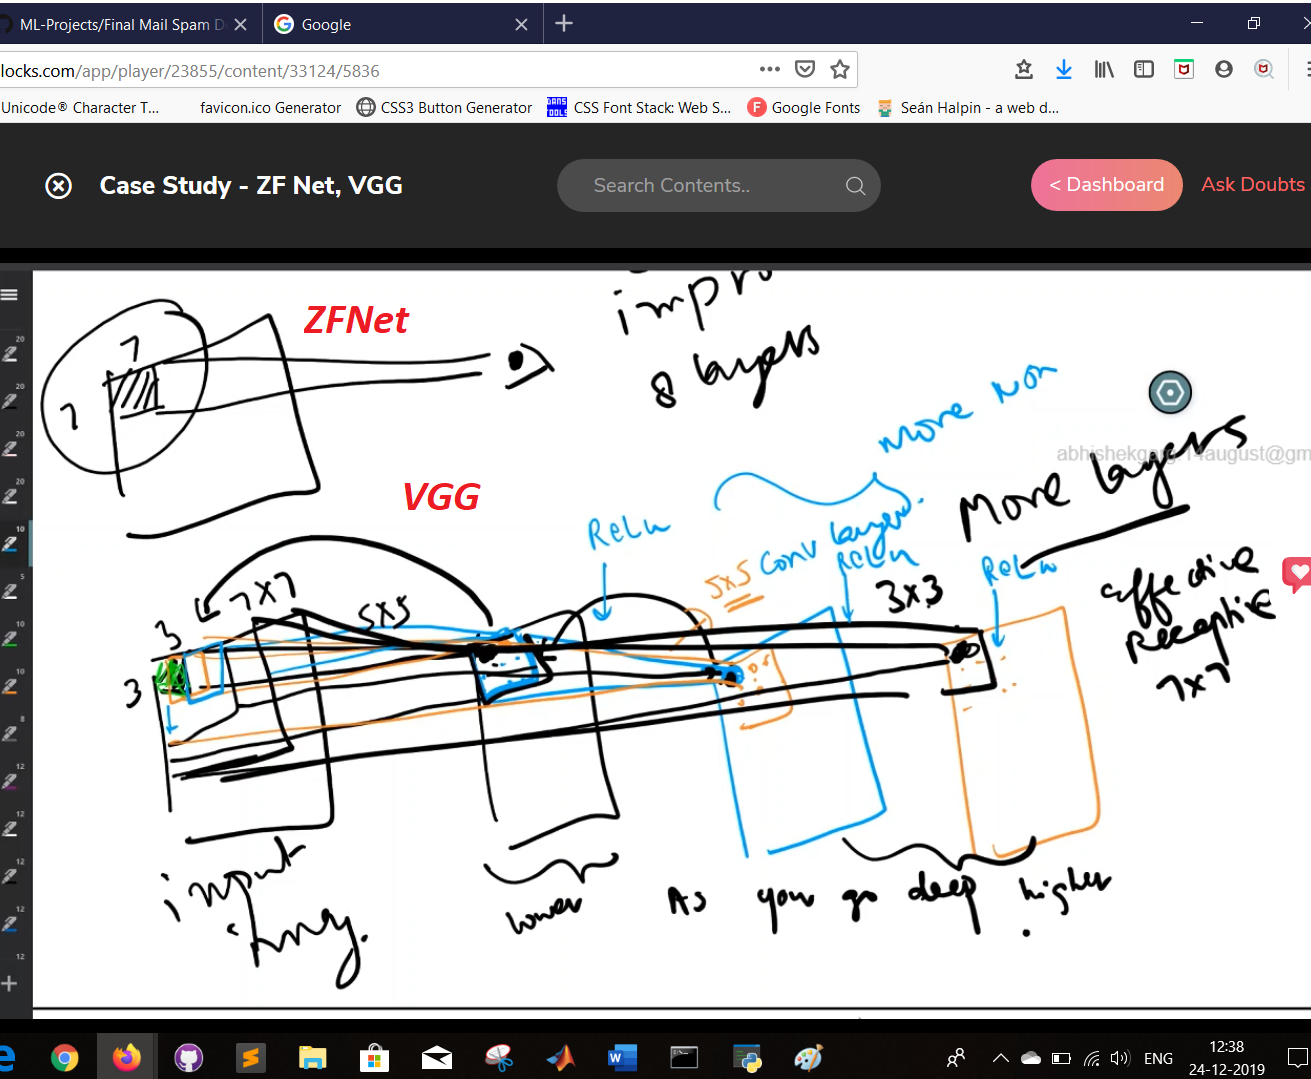 ML-Projects/Final Mail Spam D
Google
locks.com/app/player/23855/content/33124/5836
Unicode® Character T...
favicon.ico Generator
CSS3 Button Generator
CSS Font Stack: Web S...
Google Fonts
Seán Halpin - a web d...
Case Study - ZF Net, VGG
Search Contents..
< Dashboard
Ask Doubts
impro
8 layers
ZFNet
7
7
More Non
abhishekgarg.14august@gm
More layers
VGG
ReLu
Conv layers.
ReLu
ReLu
5x5
3x3
effective
receptive
7x7
7x7
5x5
3
3
input
lower
As you go deep higher
20
20
20
20
10
5
10
10
8
12
12
12
12
12
ENG
12:38
24-12-2019